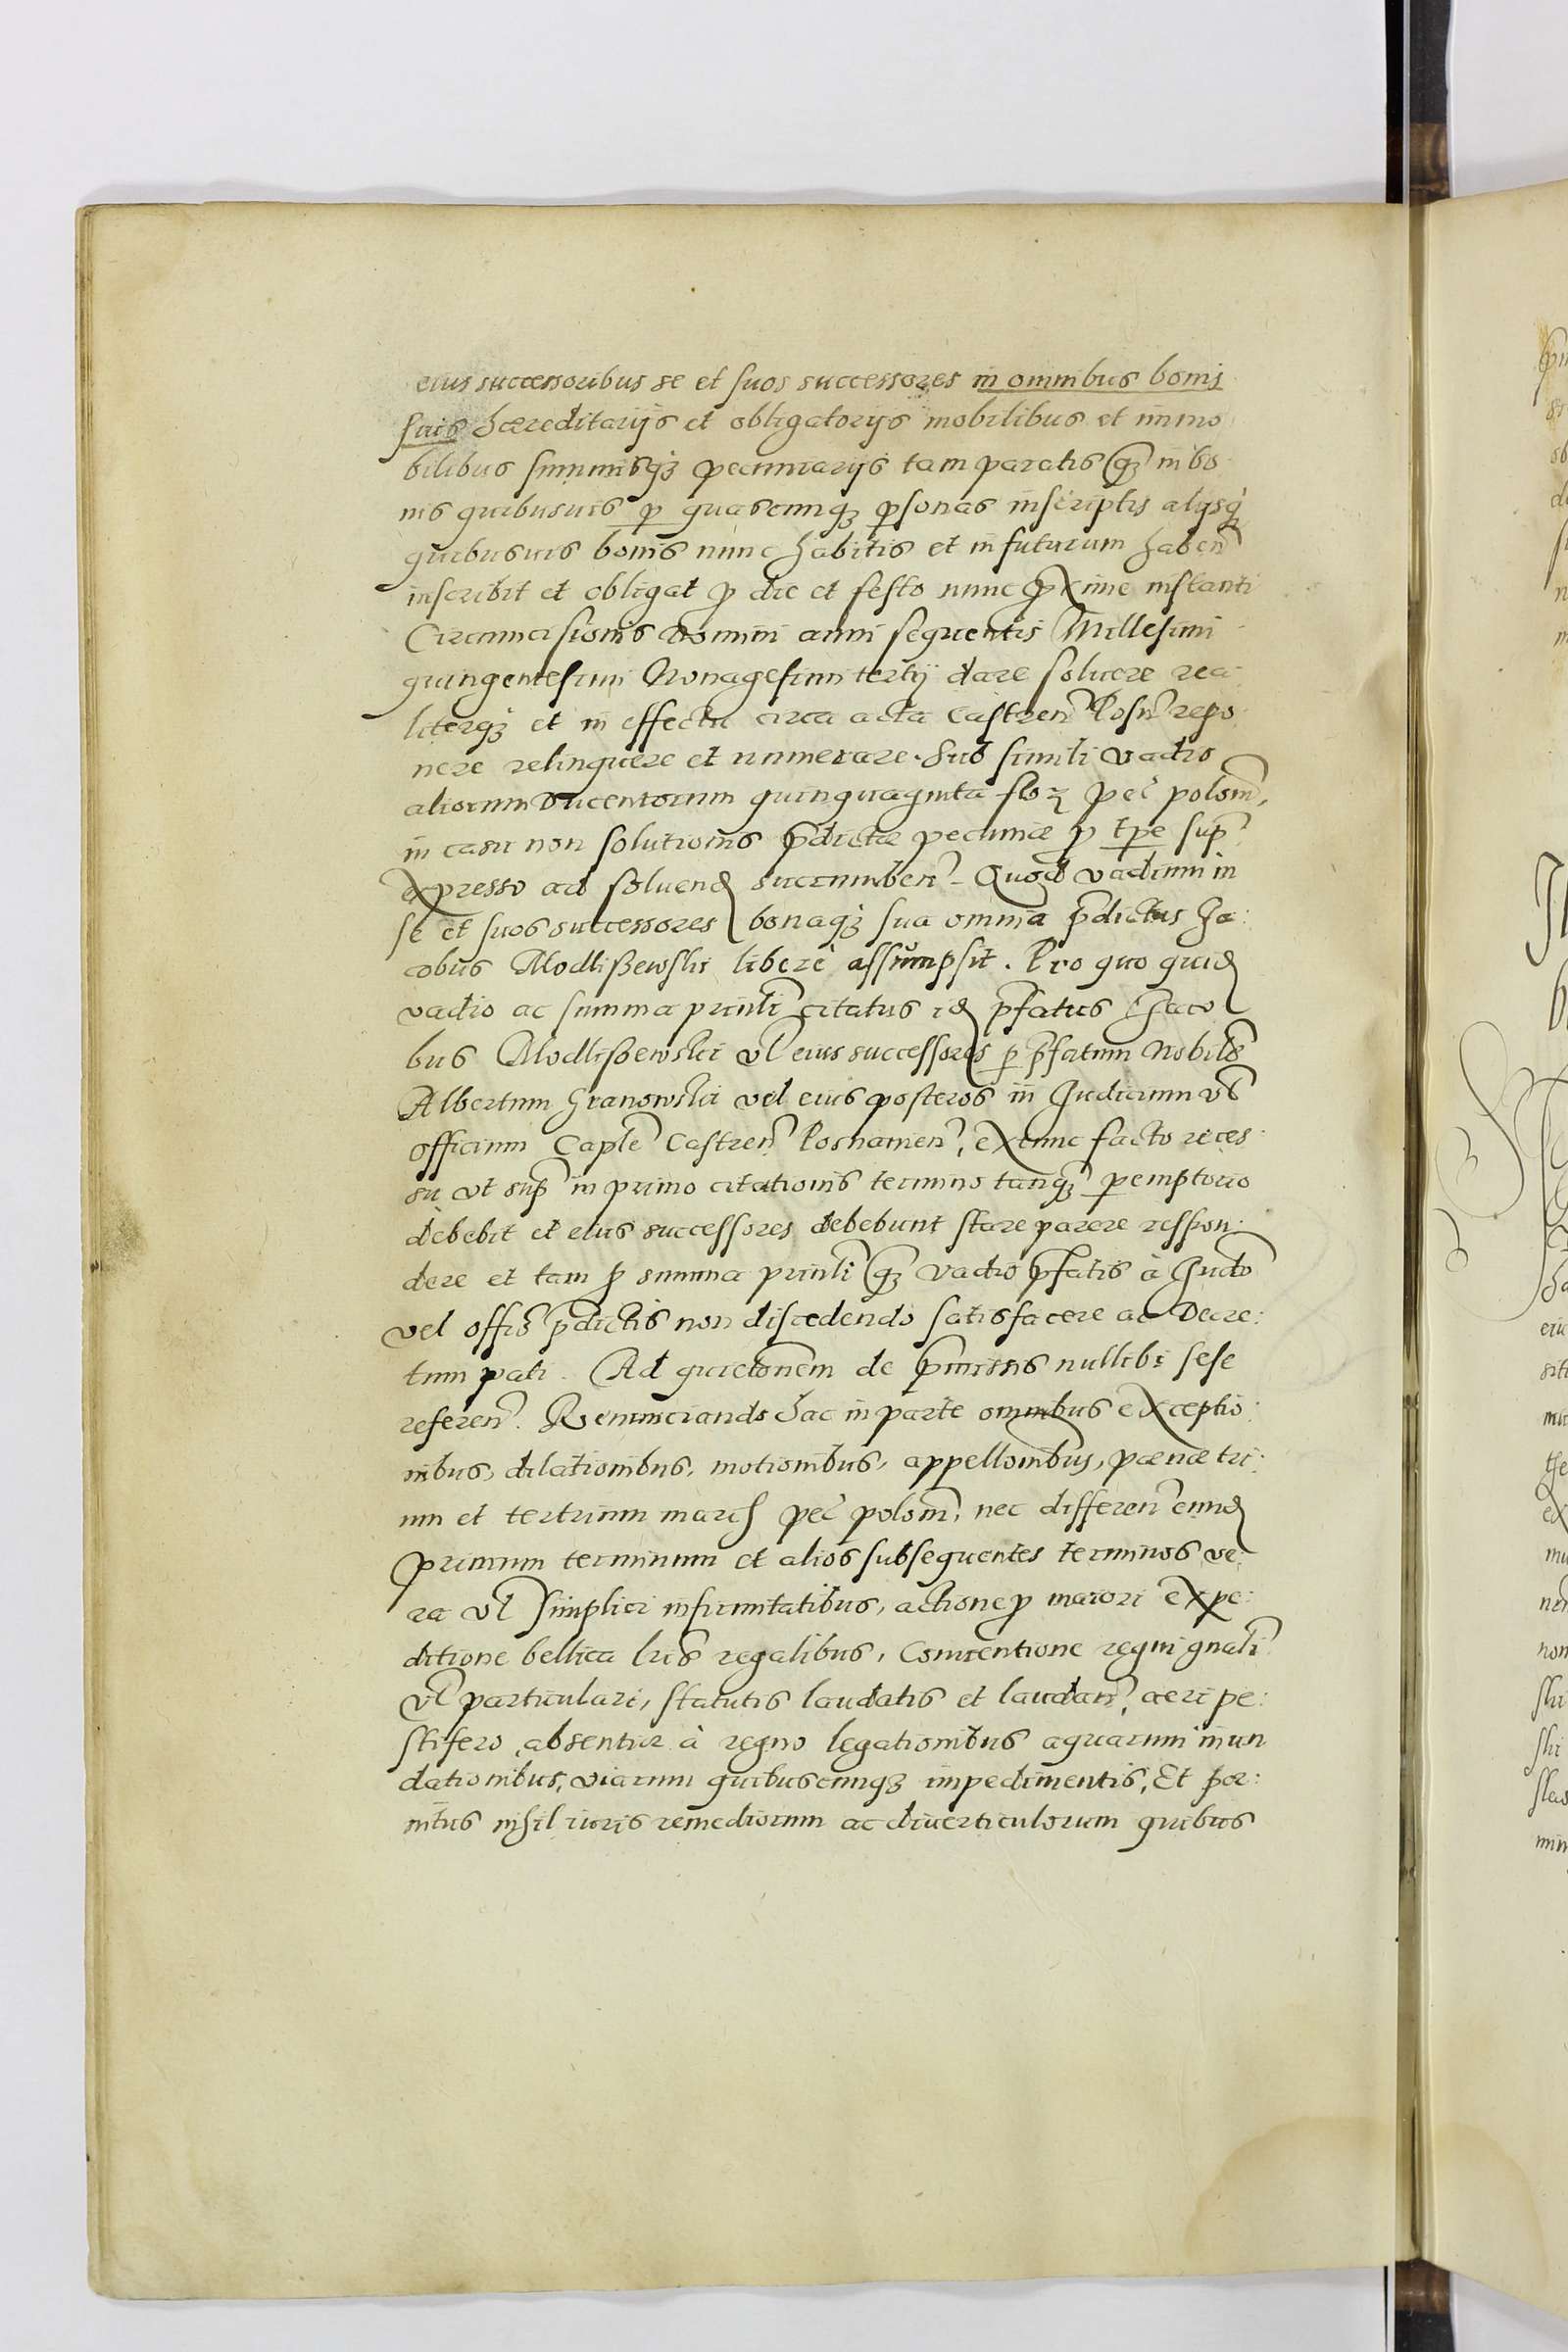 eius successoribus se et suos successores in omnibus bonis
suis hæreditarijs et obligatorijs mobilibus et immo
bilibus summisq₃ pecuniarijs tam paratis qꝫ in bo
nis quibusuis ꝑ quascunq₃ ꝑsonas inscriptis alijsq₃
quibusuis bonis nunc habitis et in futurum haben̄
inscribit et obligat ꝓ die et festo nunc ꝓxime instanti
Circumcisionis Domini anni sequentis Millesimi
quingentesimi Nonagesimi tertij dare soluere rea
literq₃ et in effectu circa acta Castren̄ Posn̄ repo
nere relinquere et numerare. Sub simili vadio
aliorum Ducentorum quinquaginta floꝝ pec̄ polon̄,
in casu non solutionis p̄dictæ pecuniæ ꝓ tp̄e sup̄
expresso ad soluend succumben̄ - Quod vadium in
se et suos successores bonaq₃ sua omnia p̄dictus Ja:
cobus Modlißewski liberè assumpsit. Pro quo quid
vadio ac summa prin̄li citatus id p̄fatus Jaco
bus Modlißewski vl̄ eius successores ꝑ p̄fatum Nobilē
Albertum Granowski vel eius posteros in Judicium vl̄
officium Capl̄e Castren̄ Posnanien̄, extunc facto reces
su vt sup̄ in primo citationis termino tanqꝫ ꝑemptorio
debebit et eius successores debebunt stare parere respon:
dere et tam ꝓ summa prin̄li qꝫ vadio p̄fatis à Jud̄o
vel offīo p̄dictis non discedendo satisfacere ac Decre:
tum pati. Ad quieto͞nem de p̄missis nullibi sese
referen̄. Renunciando hac in parte omnibus exceptio:
nibus, dilationibus, motionibus, appello͞nibus, pœnæ tri:
um et tertrium marcs pec̄ polon̄, nec differen̄ eund
primum terminum et alios subsequentes terminos ve:
ra vl̄ simplici infirmitatibus, actione ꝓ maiori expe:
ditione bellica lr̄is regalibus, Conuentione regni gn̄ali
vl̄ particulari, statutis laudatis et laudan̄, aeri pe:
stifero, absentia à regno legationibus aquarum inun
dationibus, viarum quibuscunq₃ impedimentis, Et pœ:
nitus nihil iuris remediorum ac diuerticulorum quibus